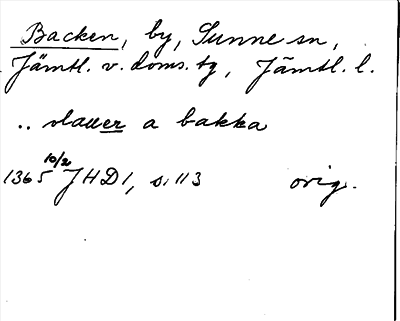 Backen, by, Sunne sn,
Jämtl. v. doms. tg, Jämtl. l.
.. vlauer a bakka
1365 10/2 JHD 1, s. 113 orig.